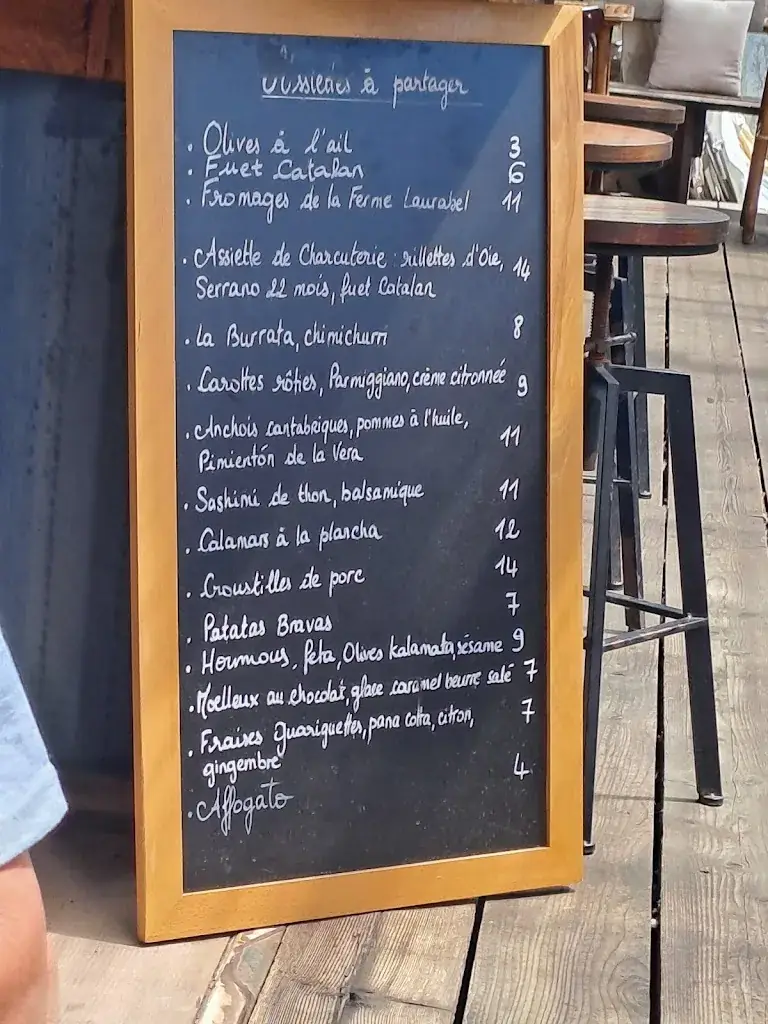 Assiettes à partager
. Olives à l'ail 3
. Fuet Catalan 6
. Fromages de la Ferme Laurabel 11
. Assiette de Charcuterie : rillettes d'Oie, 14
Serrano 22 mois, fuet Catalan
. La Burrata, chimichurri 8
. Carottes rôties, Parmiggiano, crème citronnée 9
. Anchois cantabriques, pommes à l'huile, 11
Pimientón de la Vera
. Sashimi de thon, balsamique 11
. Calamars à la plancha 12
. Croustilles de porc 14
. Patatas Bravas 7
. Houmous, feta, Olives kalamata, sésame 9
. Moelleux au chocolat, glace caramel beurre salé 7
. Fraises Guariguettes, pana cotta, citron, 7
gingembre
. Affogato 4